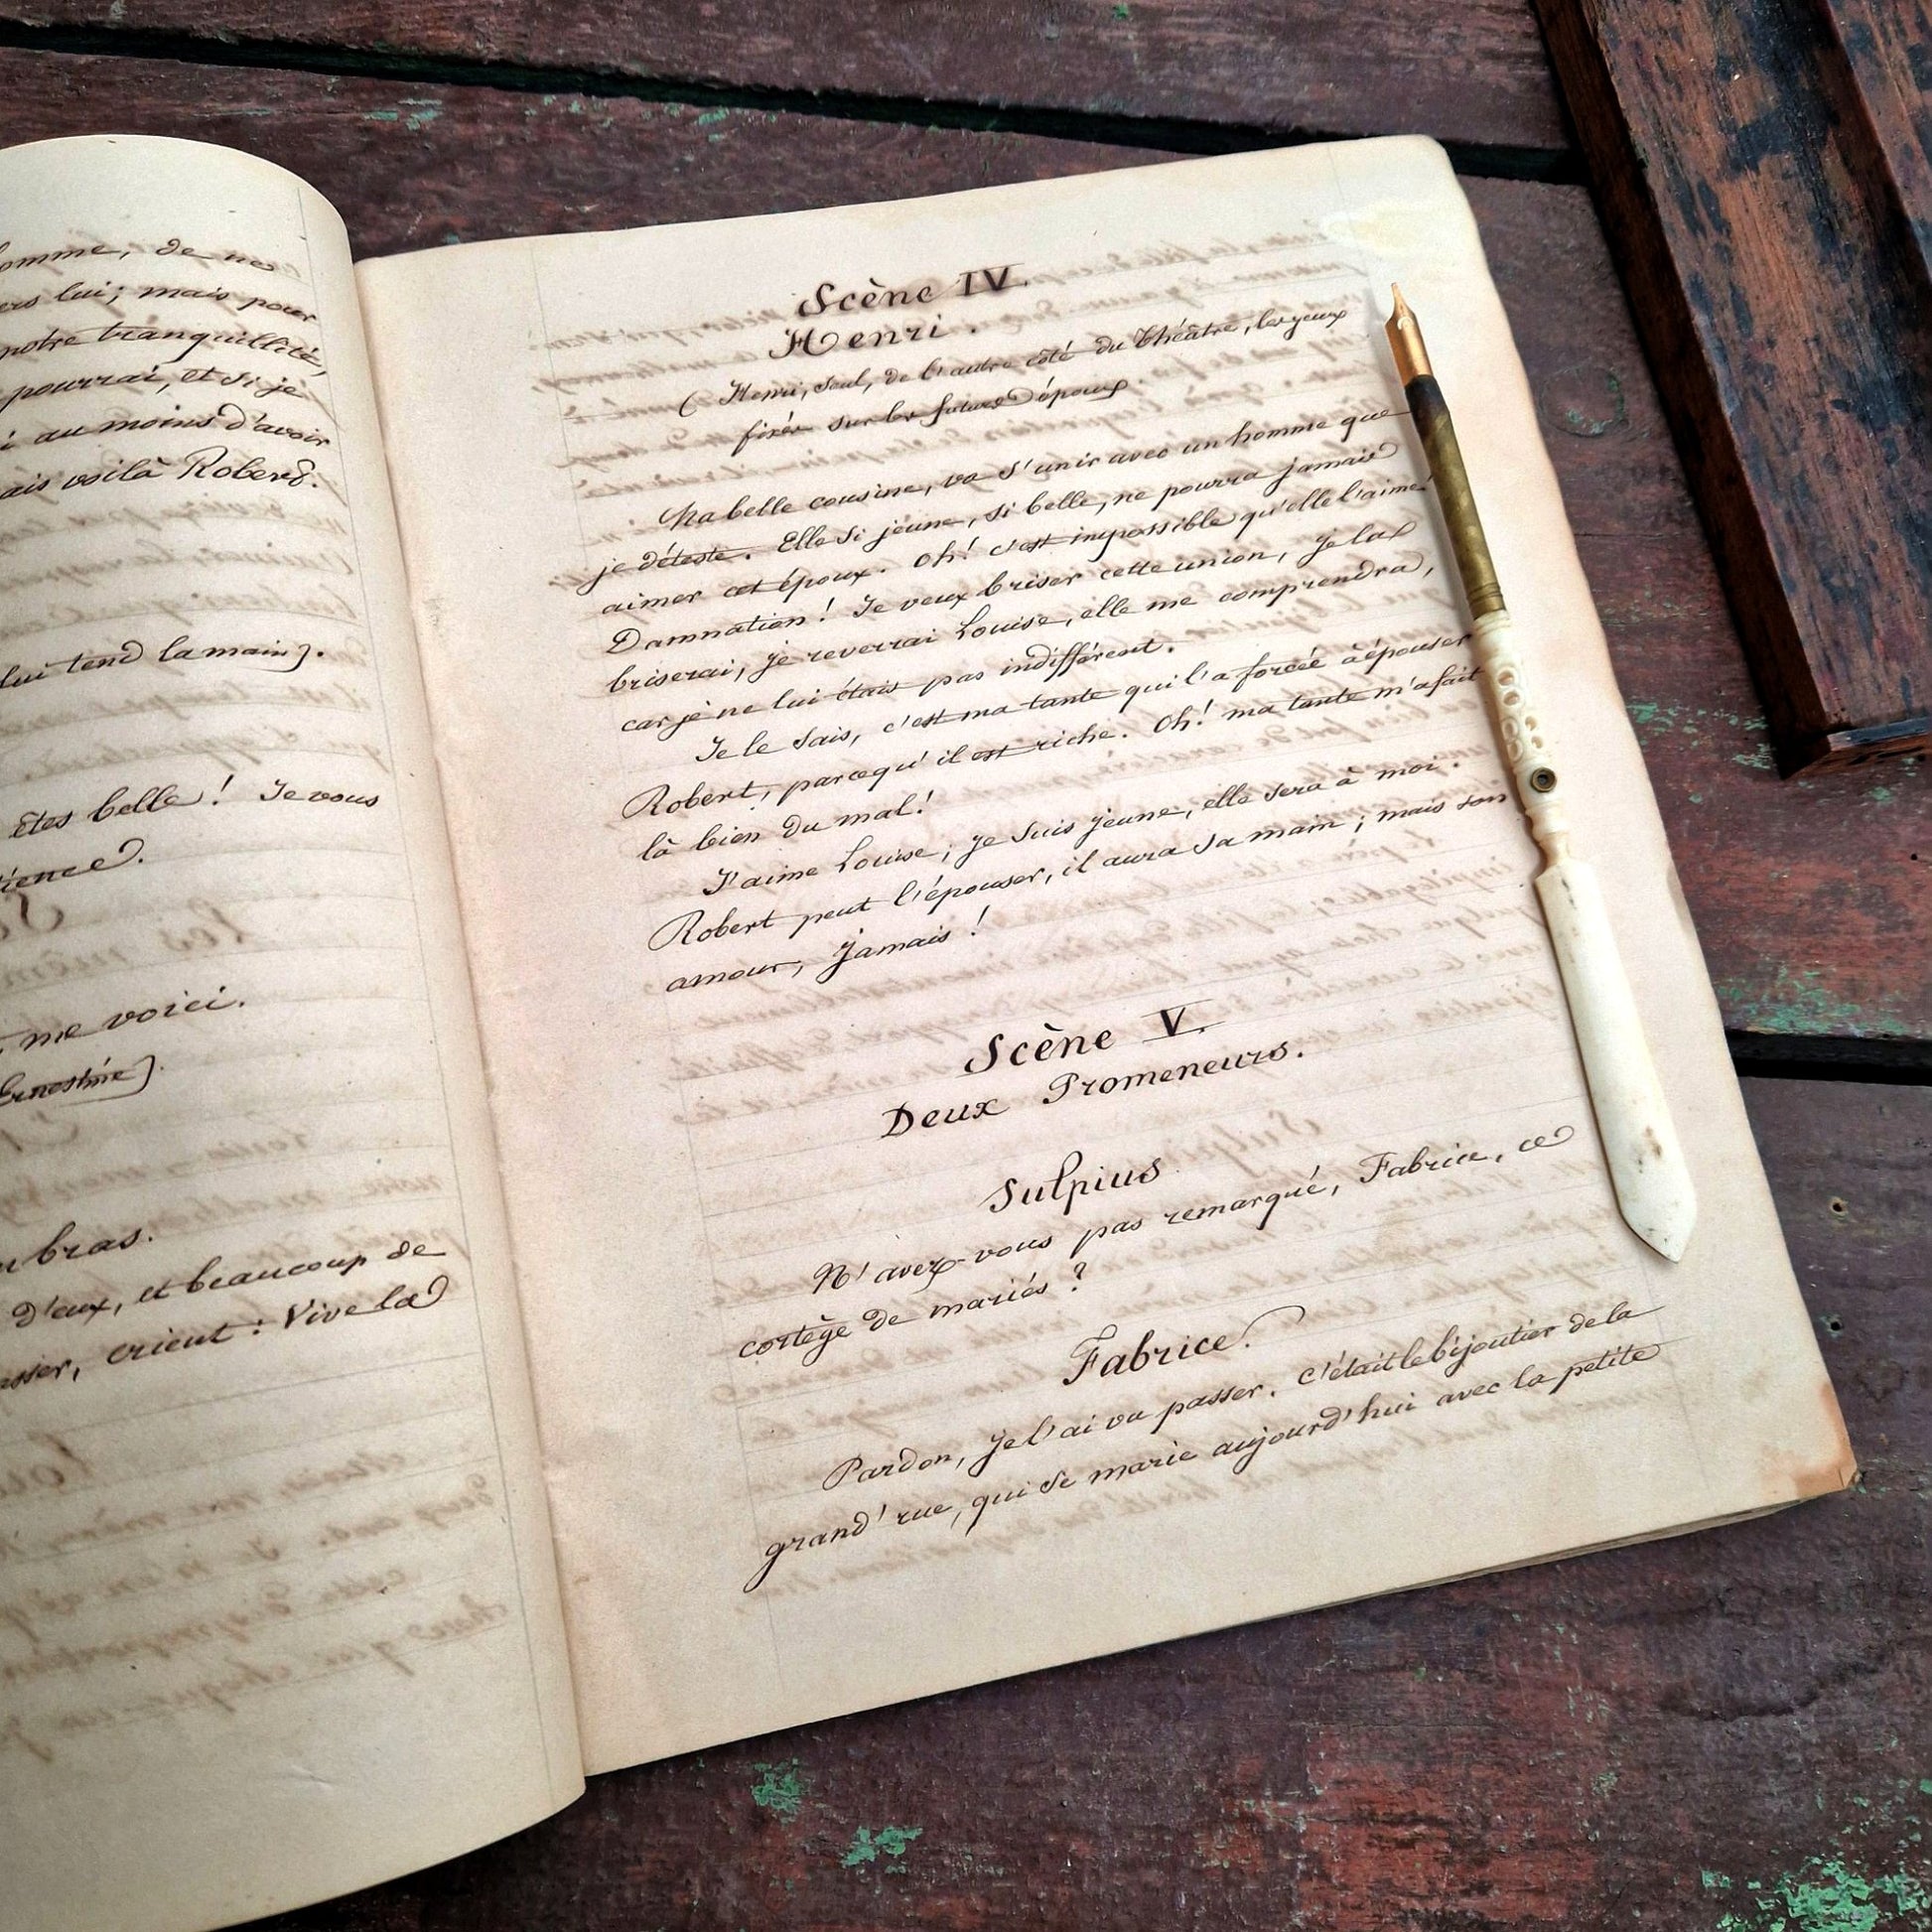 omme, de ne
ers lui; mais pour
notre tranquillité,
pourrai, et si je
au moins d'avoir
ais voilà Robert.
lui tend la main).
êtes belle! Je vous
ience.
me voici.
Ernestine).
bras.
d'eux, et beaucoup de
asser, crient: Vive la
Scène IV.
Henri.
(Henri, seul, de l'autre côté du théâtre, les yeux
fixés sur les futurs époux
Ma belle cousine, va s'unir avec un homme que
je déteste. Elle si jeune, si belle, ne pourra jamais
aimer cet époux. Oh! c'est impossible qu'elle l'aime!
Damnation! Je veux briser cette union, je la
briserai, je reverrai Louise, elle me comprendra,
car je ne lui étais pas indifférent.
Je le sais, c'est ma tante qui l'a forcée à épouser
Robert, parcequ'il est riche. Oh! ma tante m'a fait
là bien du mal!
J'aime Louise; je suis jeune, elle sera à moi.
Robert peut l'épouser, il aura sa main; mais son
amour, jamais!
Scène V.
Deux Promeneurs.
Sulpius
N'avez-vous pas remarqué, Fabrice, ce
cortège de mariés?
Fabrice.
Pardon, je l'ai vu passer. C'était le bijoutier de la
grand'rue, qui se marie aujourd'hui avec la petite